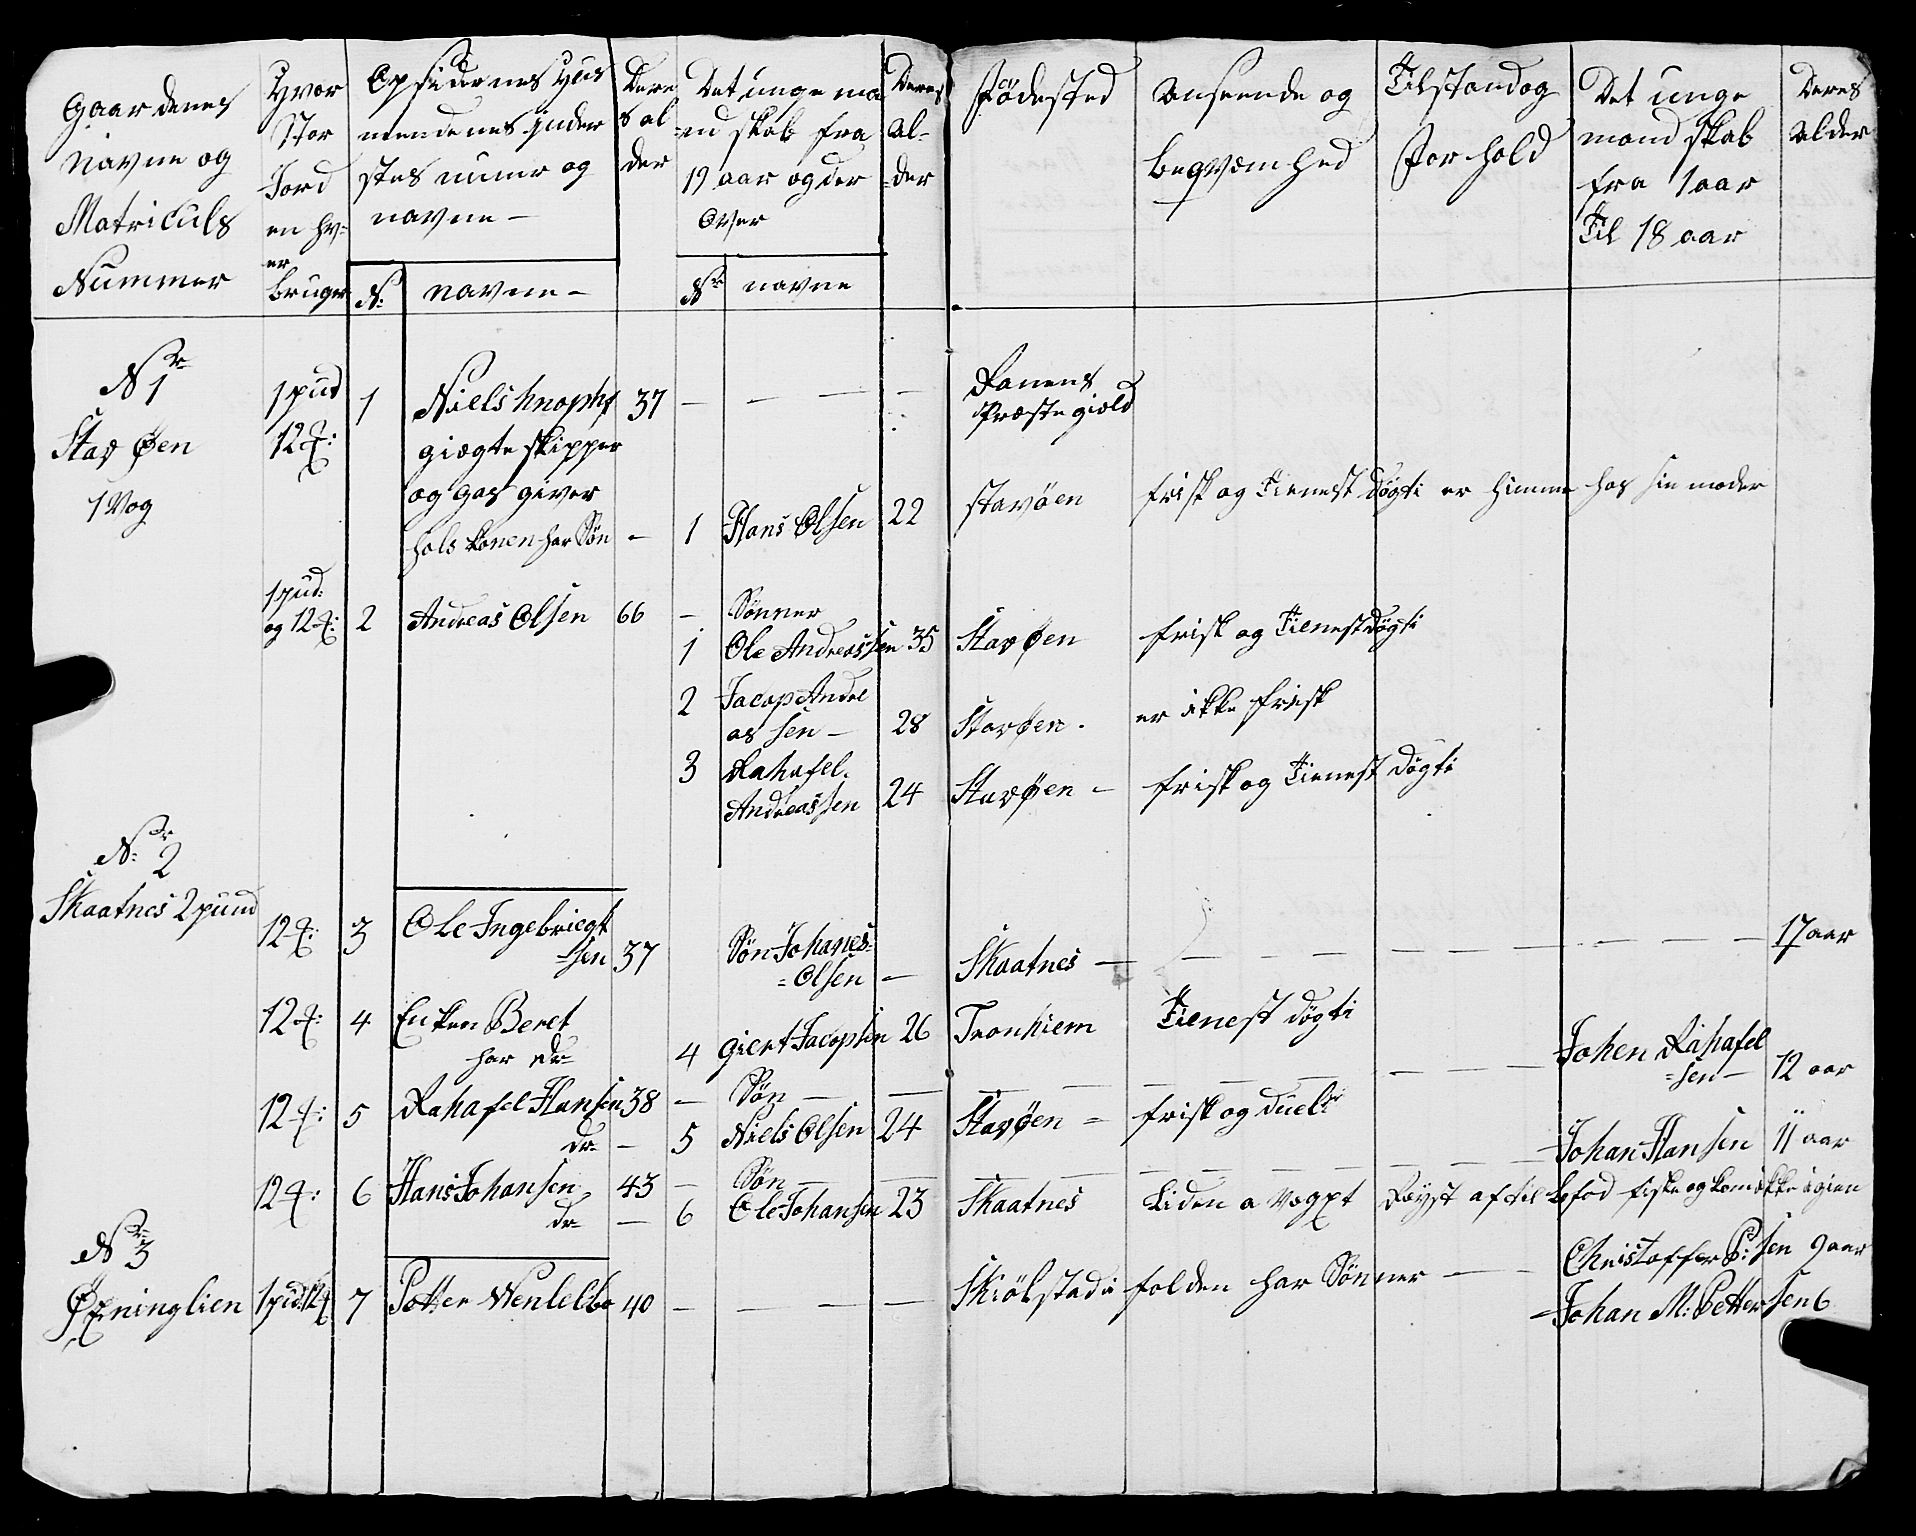 Gaardenes
Navne og
Matriculs
Nummer
Hvor
Stor
Jord
en hv-
er
bruger
Opsidernes Hus
mendenes
stes numr og
navne -
N:
navne -
Dere
s al
der
Det unge ma
nd skab fra
19 aar og der
Over
Nr
navne
Deres
al-
der
Fødested
Anseende og
beqvæmhed
Tilstand og
Forhold
Det unge
mand skab
fra 1 aar
Til 18 aar
Deres
alder
Nr 1
Stavøen
1 Vog
1 pud
12
1
Niels
37
giægte skipper
og gaas giver
konen har Søn -
1 Hans Olsen 22
Ranens
Præstegield
Stavøen frisk og Tienest døgti er himme hos sin moder
1 pud:
og 12
2 Andreas Olsen 66 - Sønner
1 Ole Andreassen 35 Stavøen frisk og Tienestdøgti
2 Jacop Andre
as sen - 28 Stavøen. er ikke frisk
3 Rahafel.
Andreassen 24 Stavøen - frisk og Tienest døgti
Nr 2
Skaatnes 2 pund
12 3 Ole Ingebriegt
sen 37 Søn Johanes=
=Olsen - Skaatnes 17 aar
12 4 Enken Beret
har
4 Giert Jacopsen 26 Tronhiem Tienest døgti
Johen Rahafel
=sen - 12 aar
12 5 Rahafel Hansen 38 - Søn -
5 Niels Olsen 24 Stavøen - frisk og
Johan Hansen 11 aar
12 6 Hans Johansen 43 - Søn -
6 Ole Johansen 23 Skaatnes Liden a Vægxt Røyst af til fiske og kom ikke igien
Nr 3
1 pud 12 7 Petter 40 - Skiølstad i folden har Sønner
Christoffer P: sen 9 aar
Johan M: Petter sen 6